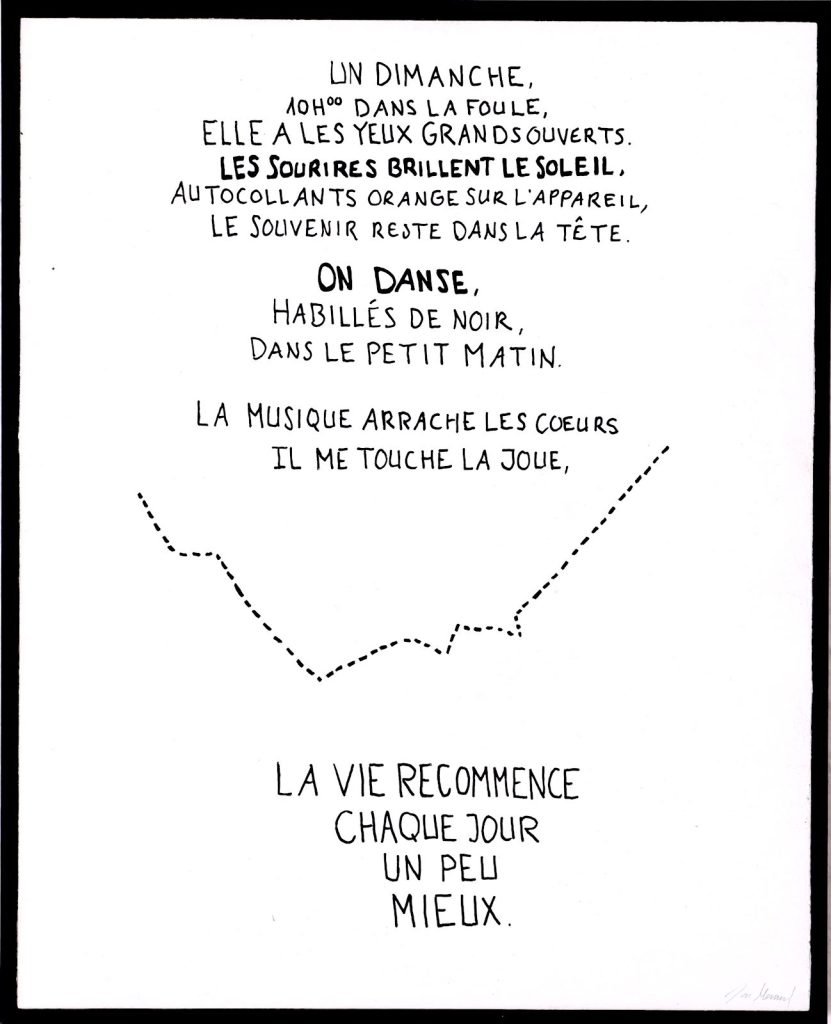 UN DIMANCHE,
10H00 DANS LA FOULE,
ELLE A LES YEUX GRANDS OUVERTS.
LES SOURIRES BRILLENT LE SOLEIL,
AUTOCOLLANTS ORANGE SUR L'APPAREIL,
LE SOUVENIR RESTE DANS LA TÊTE.
ON DANSE,
HABILLÉS DE NOIR,
DANS LE PETIT MATIN.
LA MUSIQUE ARRACHE LES COEURS
IL ME TOUCHE LA JOUE,
LA VIE RECOMMENCE
CHAQUE JOUR
UN PEU
MIEUX.